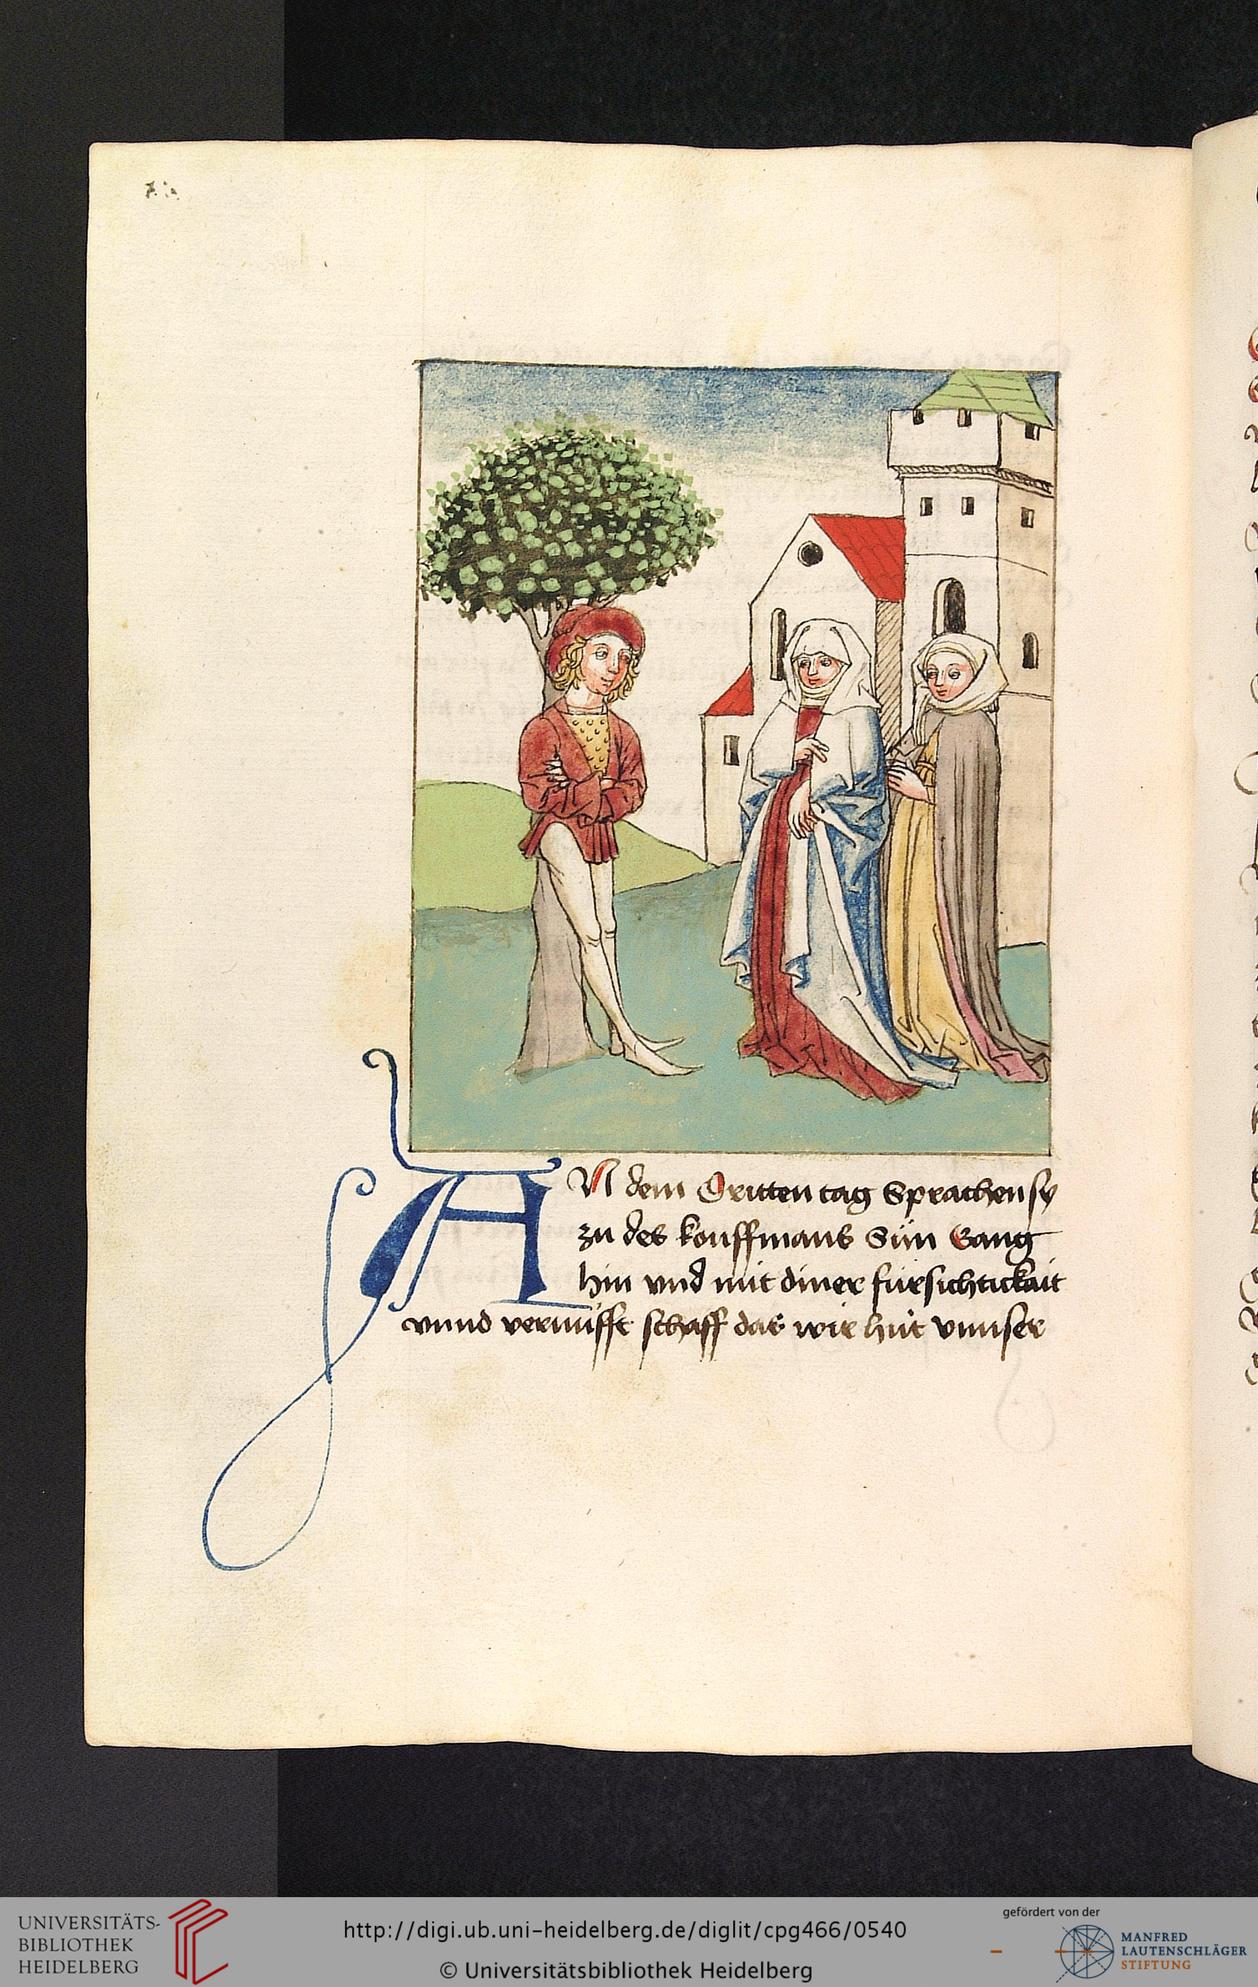 AN dem Dritten tag Sprachen sy
zu des kouffmans Sun Gang
hin vnd mit diner fürsichtickait
vnnd vernüfft schaff das wir hüt vnnser
UNIVERSITÄTS-
BIBLIOTHEK
HEIDELBERG
http://digi.ub.uni-heidelberg.de/diglit/cpg466/0540
© Universitätsbibliothek Heidelberg
gefördert von der
MANFRED
LAUTENSCHLÄGER
STIFTUNG